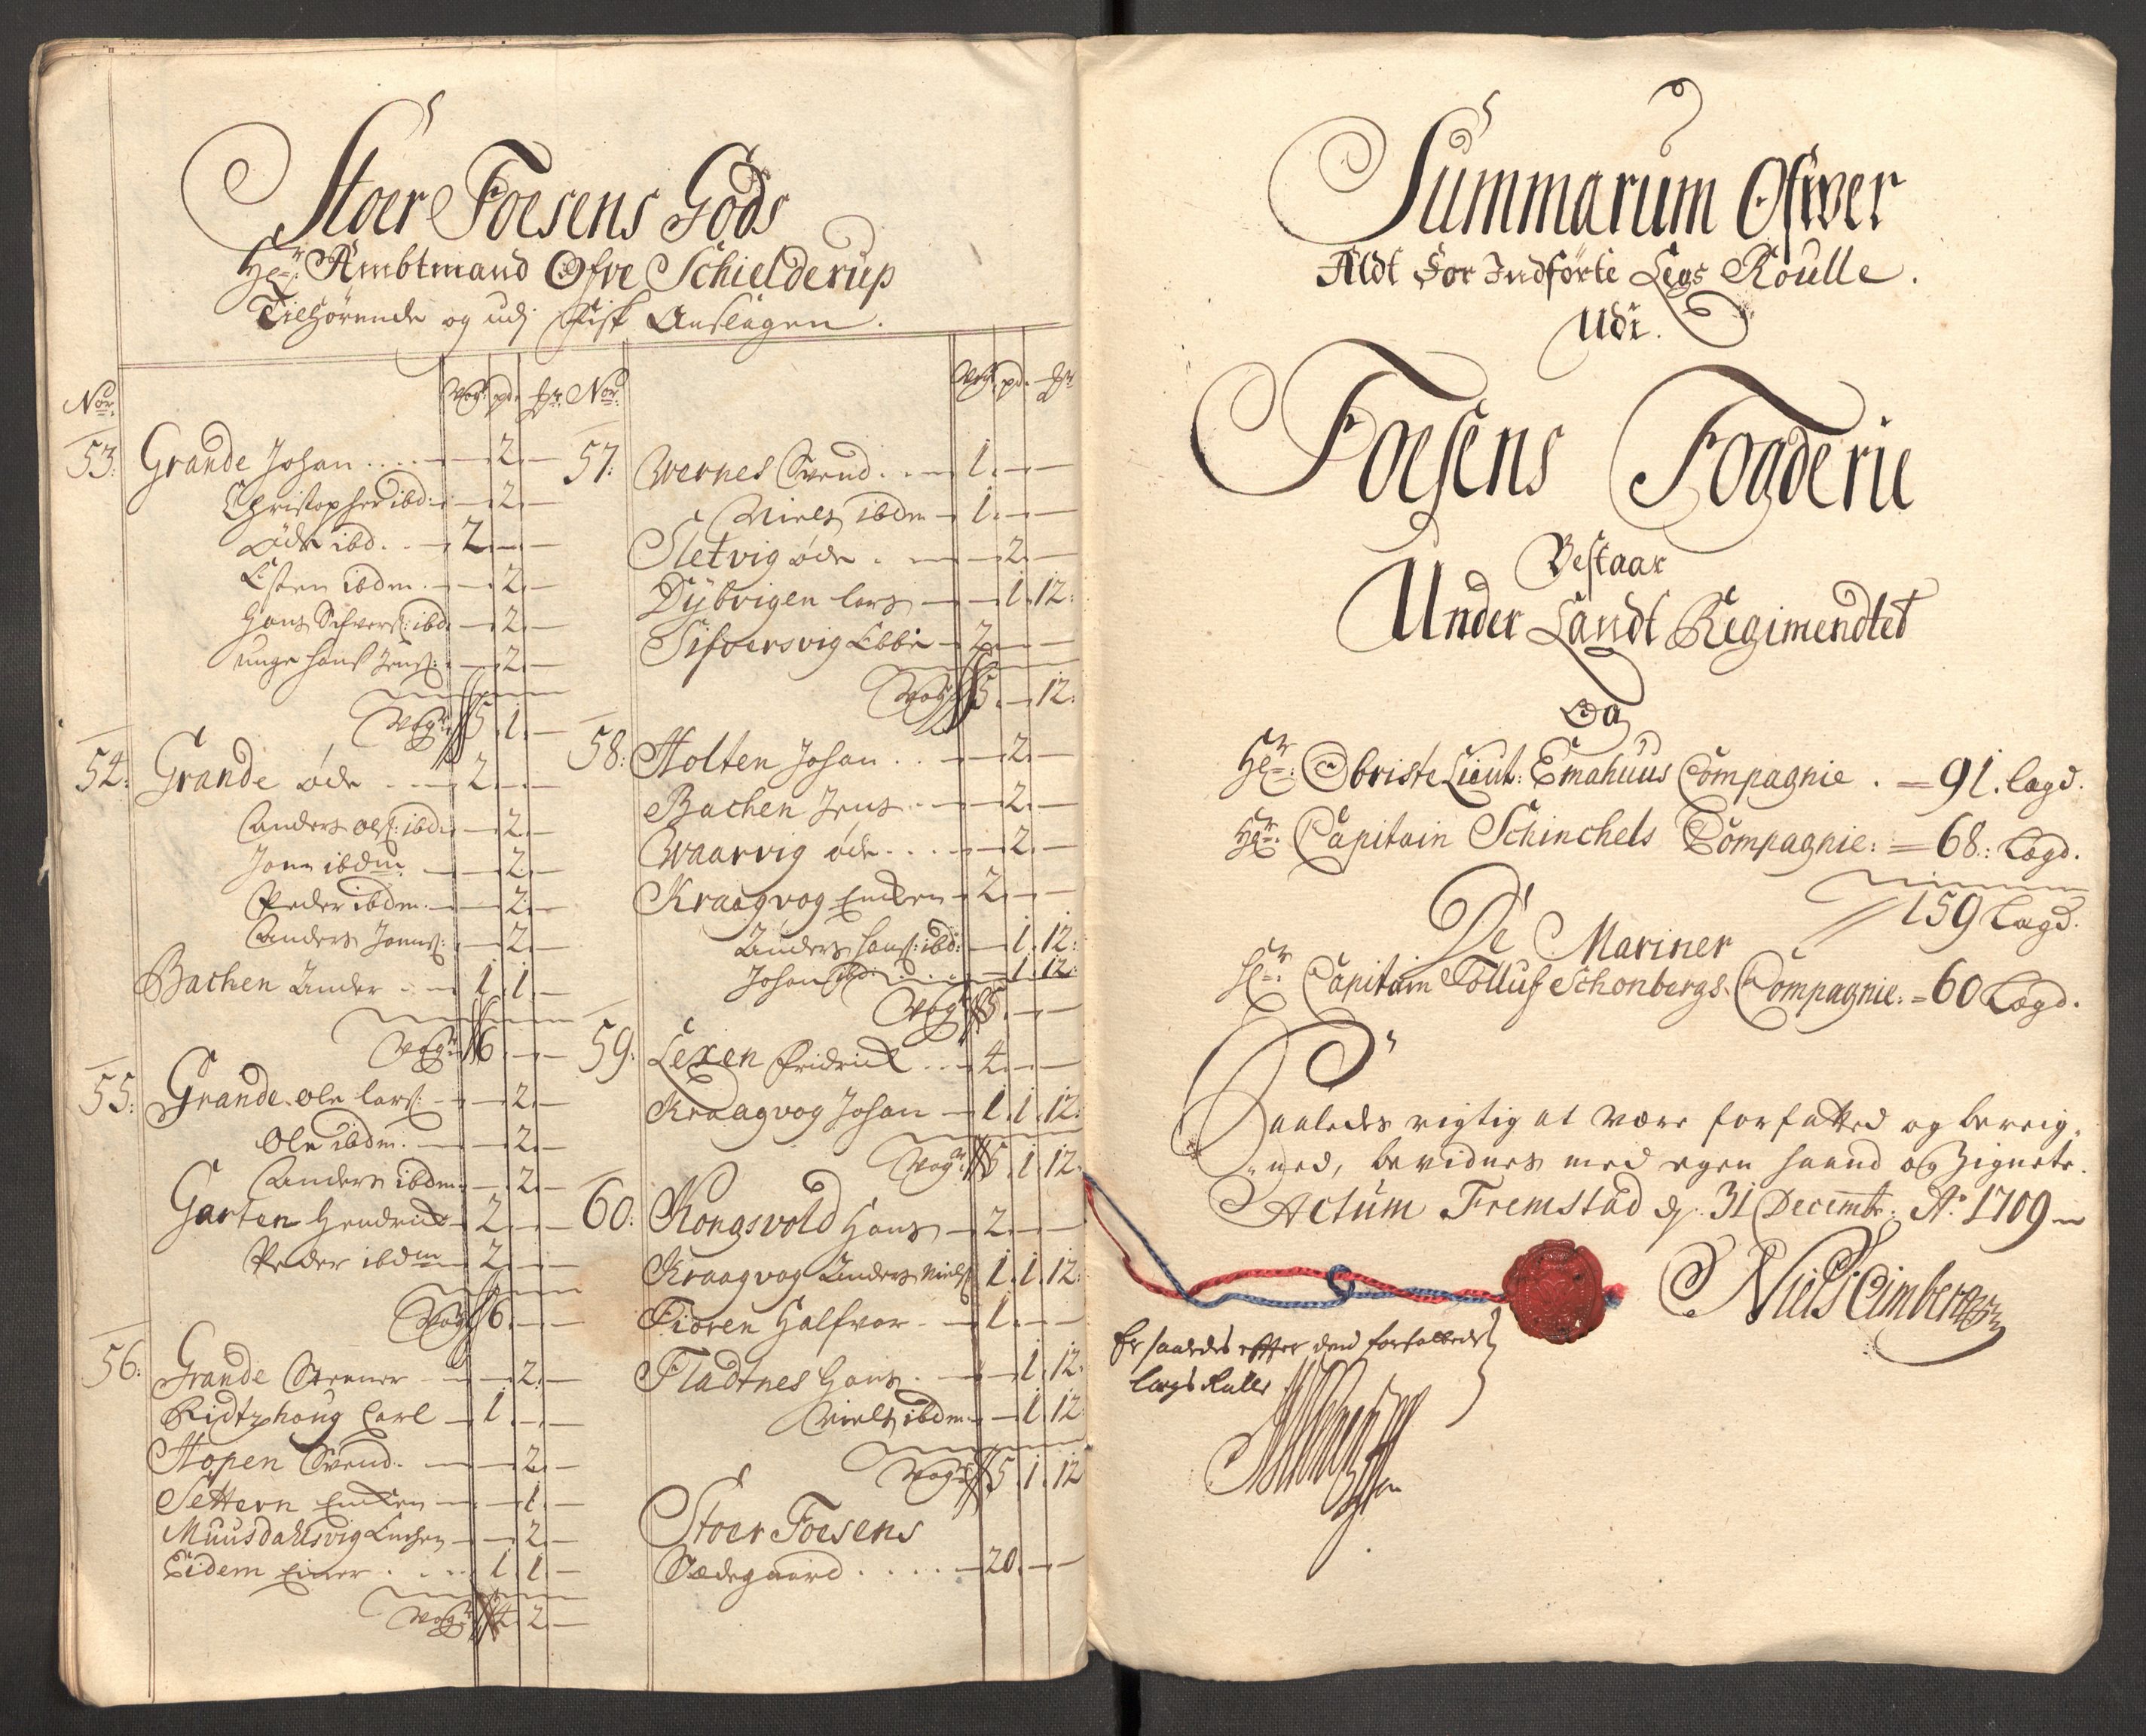 Stoer Foesens Gods
Hr: Ambtmand Ofve Schielderup
Tilhørende og udj Fisk Anslagen.
No. Vog: pd. No.
53: Grande Johan .... 2
Christopher ibd: 2
Øde ibd. 2
Esten ibdm. 2
Hans Sifvers: ibd 2
unge Hans Jens: 2
Vogr 5. 1.
54: Grande øde 2
Anders Ols: ibd: 2
Jonn ibdm 2
Peder ibdm. 2
Anders Jonns: 2
Bachen Ander 1. 1.
Vogr 6.
55: Grande Ole Lars: 2
Ole ibdm. 2
Anders ibdm. 2
Garten Hendrick 2
Peder ibdm 2
Vogr 6.
56: Grande Steener 2
Ridtzhoug Carl 1
Hopen Svend. 2
Settern Encken 1
Muusdahlsvig 2
Eidem Einer . . . 1. 1
Vogr 4. 2
Vog. pd.
57: Wernes Svend . . 1.
Niels ibdm 1.
Sletvig øde . 2
Dybvigen Lars 1. 12:
Sifversvig Ebbe 2
Vogr 5. 12:
58: Holten Johan . . 2
Bachen Jens . 2
Waarvig øde . . . 2
Kraagvog Encken 2
Anders Hans: ibd: 1. 12:
Johan ibd: 1. 12:
Vogr 5.
59: Lexen Fridrick . . 4
Kraagvog Johan 1. 1. 12:
Vogr 5. 1. 12
60: Kongsvold Hans 2
Kraagvog Anders Niels: 1. 1. 12:
Fioren Halfvor 1.
Fladtnes Hans . 1. 12:
Niels ibdm. 1. 12
Vogr 5. 1. 12
Stoer Foesens
Sædegaard . . . . . 20.
Summarum Ofwer
Aldt For Indførte Legs Roulle.
Udi.
Foesens Fogderie
Bestaar
Under Landt Regimendtet
Og
Hr: Obriste Lieut: Emahuus Compagnie . = 91. Lægd.
Hr: Capitain Schinchels Compagnie: = 68: Lægd.
159 Lægd.
De Mariner
Hr: Capitain Tolluf Schonbergs Compagnie: = 60 Lægd.
Saaledes rigtig at være forfatted og bereig-
ned, bevidnes med egen haand og Zignete.
Actum Fremstad d. 31 Decembr: Ao 1709
Niels Cimber
Er saaledes efter dend forfattede
Lægs Rulle